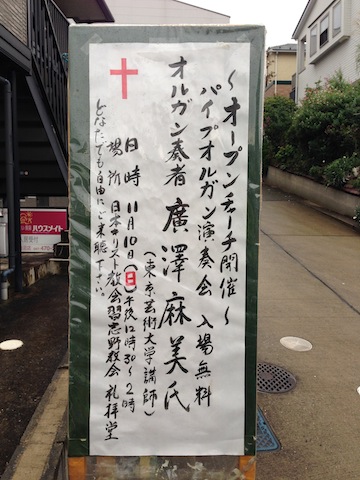 ～オープンチャーチ開催～
パイプオルガン演奏会 入場無料
オルガン奏者 廣澤麻美氏
(東京芸術大学講師)
日時 11月10日(日)午後12時30～2時
場所 日本キリスト教会習志野教会 礼拝堂
どなたでも自由にご来聴下さい。
ハウスメイト